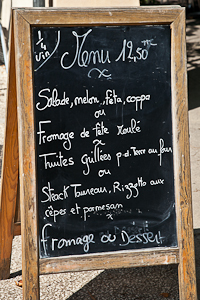 1/4 vin
Menu 12,50
Salade, melon, fêta, coppa
ou
Fromage de tête
ou
Truites p.d. Terre au four
ou
Steack Taureau, Rizzetto aux
cêpes et parmesan
fromage ou Dessert